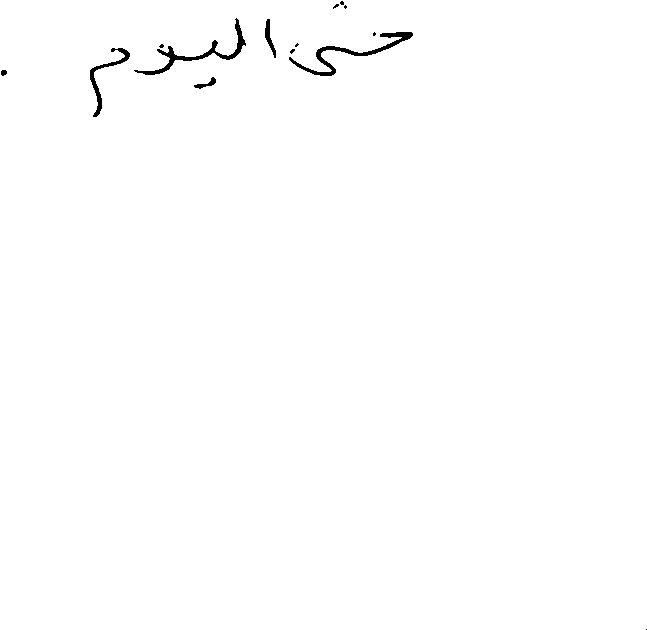 حتى اليوم .